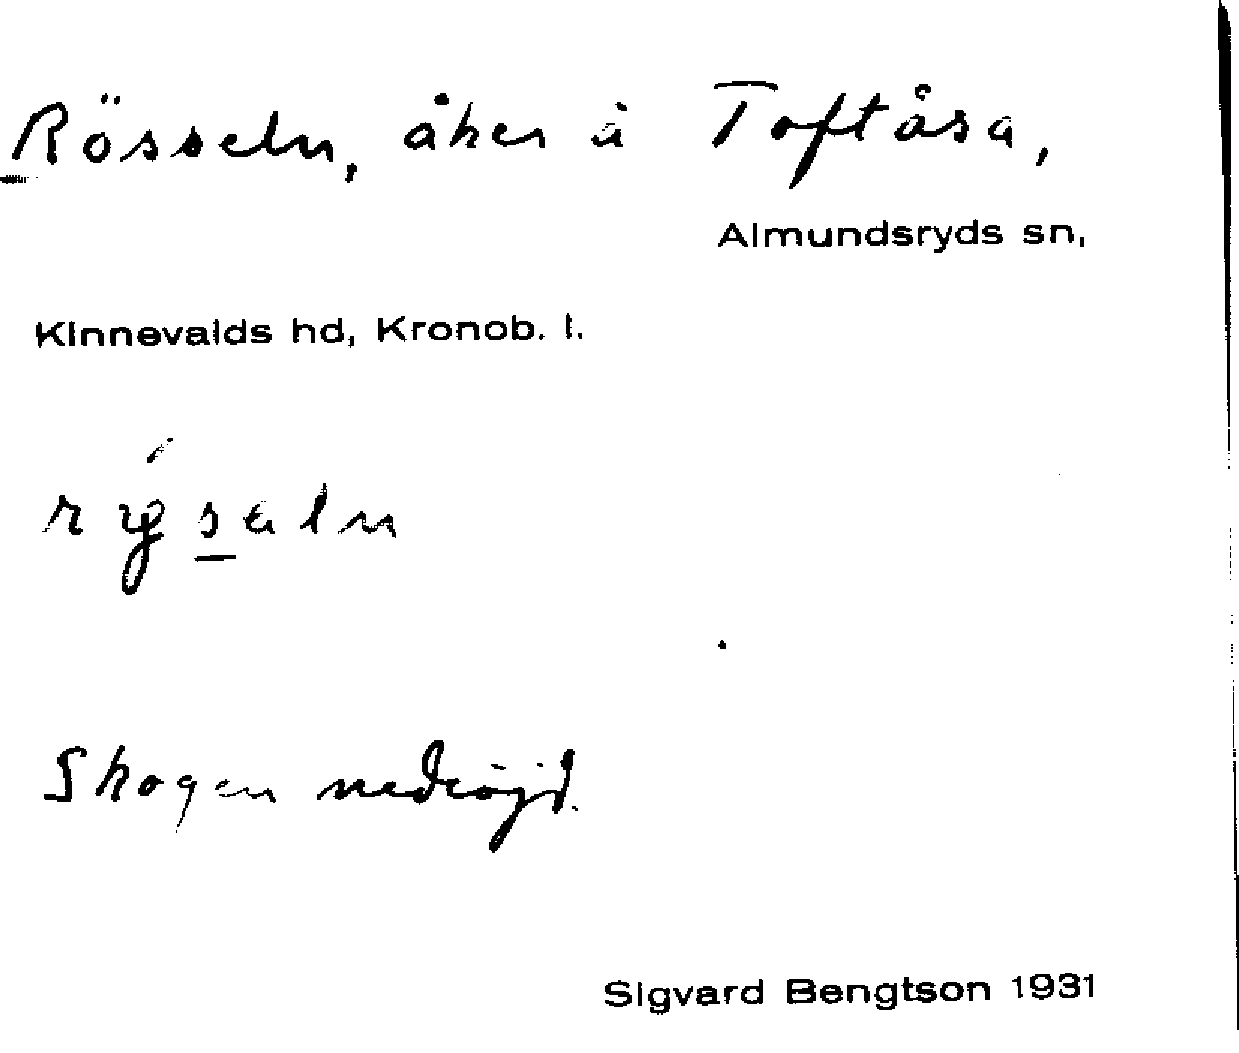 Rösseln, åker å Toftåsa,
Almundsryds sn,
Kinnevalds hd, Kronob. l.
Skogen nedröjd.
Sigvard Bengtson 1931